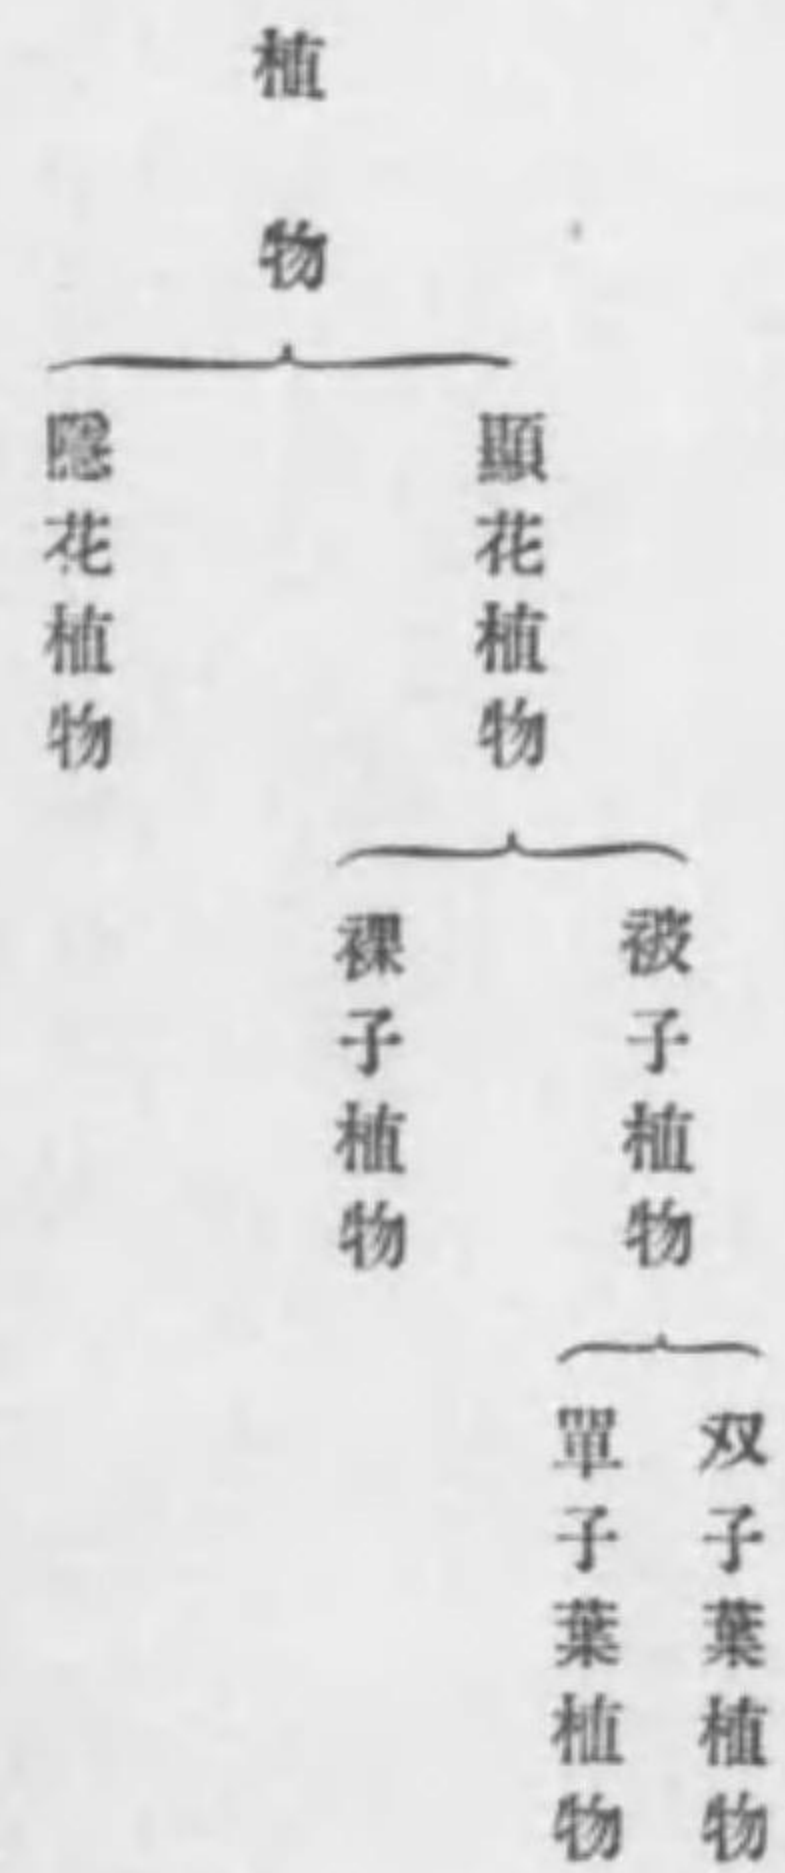 植物
顯花植物
隱花植物
被子植物
裸子植物
双子葉植物
單子葉植物